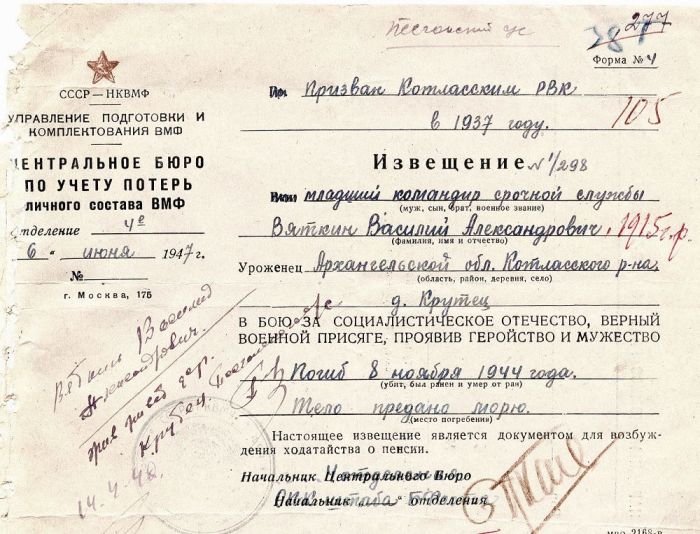 277
Форма № 4
СССР—НКВМФ
УПРАВЛЕНИЕ ПОДГОТОВКИ И
КОМПЛЕКТОВАНИЯ ВМФ
ЦЕНТРАЛЬНОЕ БЮРО
ПО УЧЕТУ ПОТЕРЬ
личного состава ВМФ
Отделение 4е
6 „ июня 1947 г.
№
г. Москва, 175
Призван Котласским РВК
в 1937 году.
105
Извещение № 1/298
младший командир срочной службы
(муж, сын, брат, военное звание)
Вяткин Василий Александрович, 1915 г.р.
(фамилия, имя и отчество)
Уроженец Архангельской обл. Котласского р-на,
(область, район, деревня, село)
д. Крутец
В БОЮ ЗА СОЦИАЛИСТИЧЕСКОЕ ОТЕЧЕСТВО, ВЕРНЫЙ
ВОЕННОЙ ПРИСЯГЕ, ПРОЯВИВ ГЕРОЙСТВО И МУЖЕСТВО
Погиб 8 ноября 1944 года.
(убит, был ранен и умер от ран)
Тело предано морю.
(место погребения)
Настоящее извещение является документом для возбуж-
дения ходатайства о пенсии.
Начальник Центрального Бюро
Начальник „ отделения
Вяткин Василий
Александрович.
14.4.48